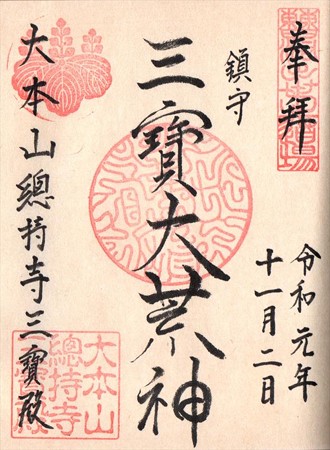 奉拜
令和元年
十一月二日
鎮守
三寶大荒神
大本山總持寺三寶殿
大本山
總持寺